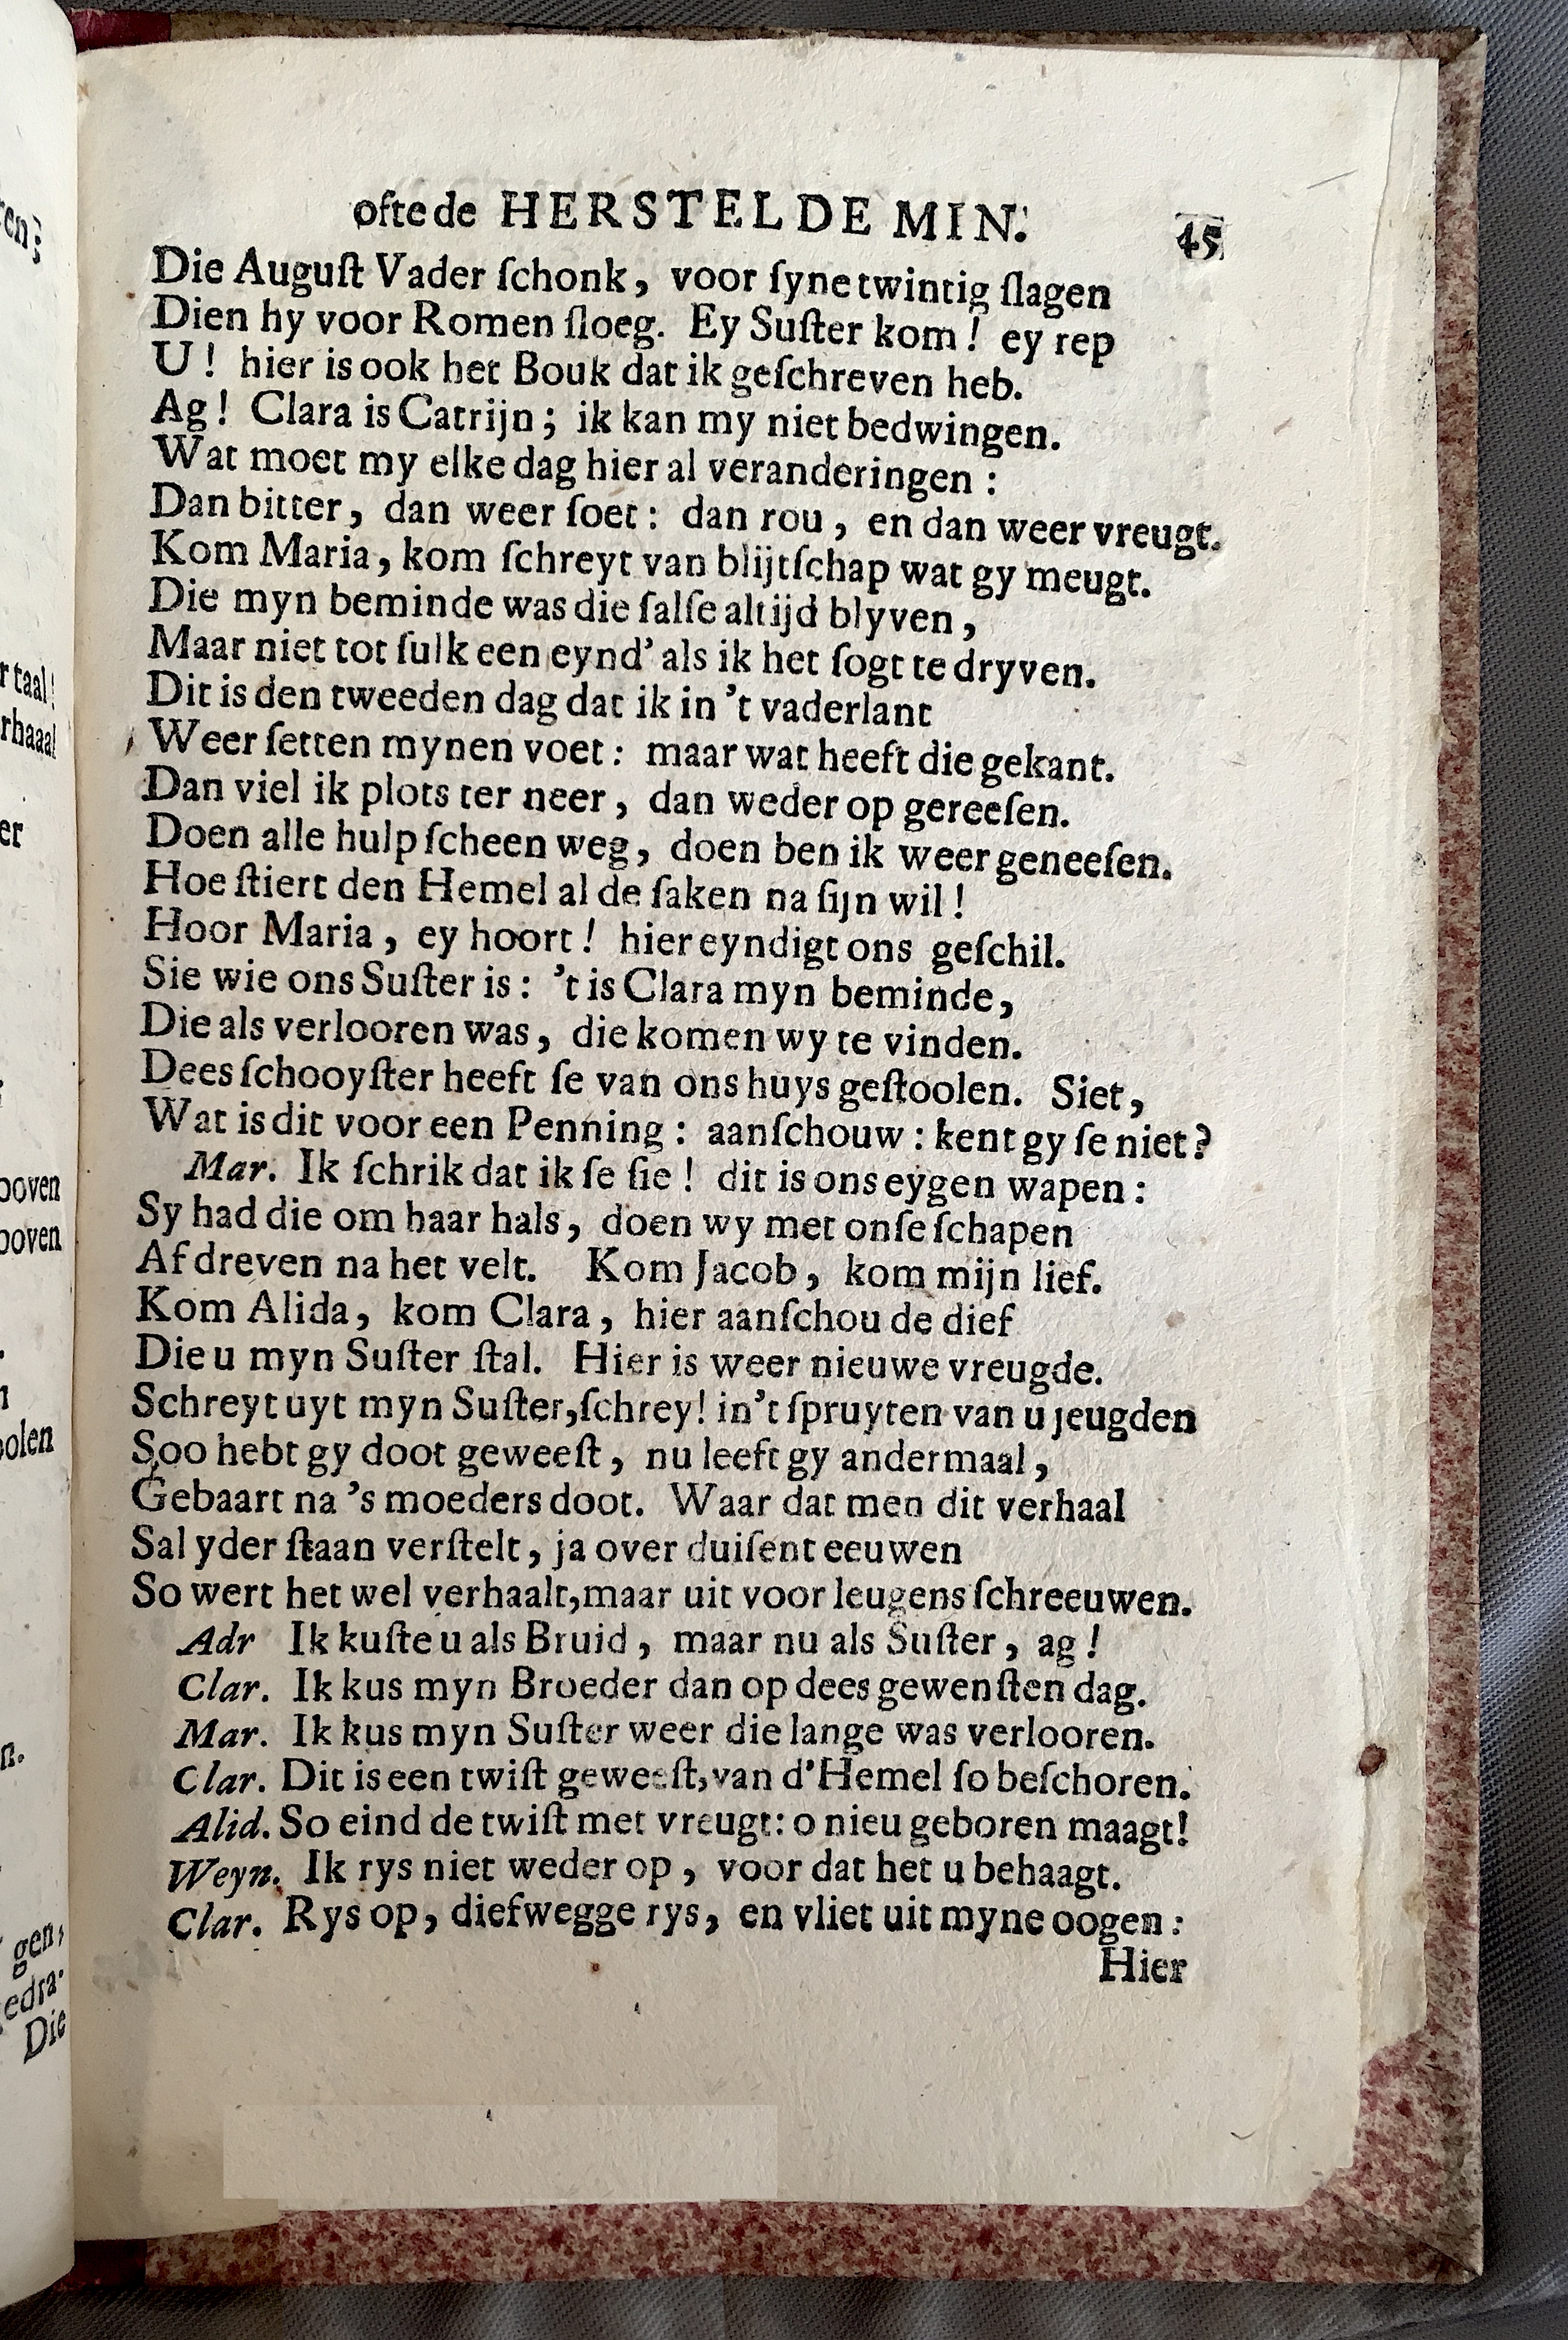 ofte de HERSTELDE MIN. 45
Die Auguſt Vader ſchonk, voor ſyne twintig ſlagen
Dien hy voor Romen ſloeg. Ey Suſter kom! ey rep
U! hier is ook het Bouk dat ik geſchreven heb.
Ag! Clara is Catrijn; ik kan my niet bedwingen.
Wat moet my elke dag hier al veranderingen:
Dan bitter, dan weer ſoet: dan rou, en dan weer vreugt.
Kom Maria, kom ſchreyt van blijtſchap wat gy meugt.
Die myn beminde was die ſalſe altijd blyven,
Maar niet tot ſulk een eynd' als ik het ſogt te dryven.
Dit is den tweeden dag dat ik in 't vaderlant
Weer ſetten mynen voet: maar wat heeft die gekant.
Dan viel ik plots ter neer, dan weder op gereeſen.
Doen alle hulp ſcheen weg, doen ben ik weer geneeſen.
Hoe ſtiert den Hemel al de ſaken na ſijn wil!
Hoor Maria, ey hoort! hier eyndigt ons geſchil.
Sie wie ons Suſter is: 't is Clara myn beminde,
Die als verlooren was, die komen wy te vinden.
Dees ſchooyſter heeft ſe van ons huys geſtoolen. Siet,
Wat is dit voor een Penning: aanſchouw: kent gy ſe niet?
Mar. Ik ſchrik dat ik ſe ſie! dit is ons eygen wapen:
Sy had die om haar hals, doen wy met onſe ſchapen
Af dreven na het velt. Kom Jacob, kom mijn lief.
Kom Alida, kom Clara, hier aanſchou de dief
Die u myn Suſter ſtal. Hier is weer nieuwe vreugde.
Schreyt uyt myn Suſter, ſchrey! in't ſpruyten van u jeugden
Soo hebt gy doot geweeſt, nu leeft gy andermaal,
Gebaart na 's moeders doot. Waar dat men dit verhaal
Sal yder ſtaan verſtelt, ja over duiſent eeuwen
So wert het wel verhaalt, maar uit voor leugens ſchreeuwen.
Adr Ik kuſte u als Bruid, maar nu als Suſter, ag!
Clar. Ik kus myn Broeder dan op dees gewenſten dag.
Mar. Ik kus myn Suſter weer die lange was verlooren.
Clar. Dit is een twiſt geweeſt, van d'Hemel ſo beſchoren.
Alid. So eind de twiſt met vreugt: o nieu geboren maagt!
Weyn. Ik rys niet weder op, voor dat het u behaagt.
Clar. Rys op, diefwegge rys, en vliet uit myne oogen:
Hier